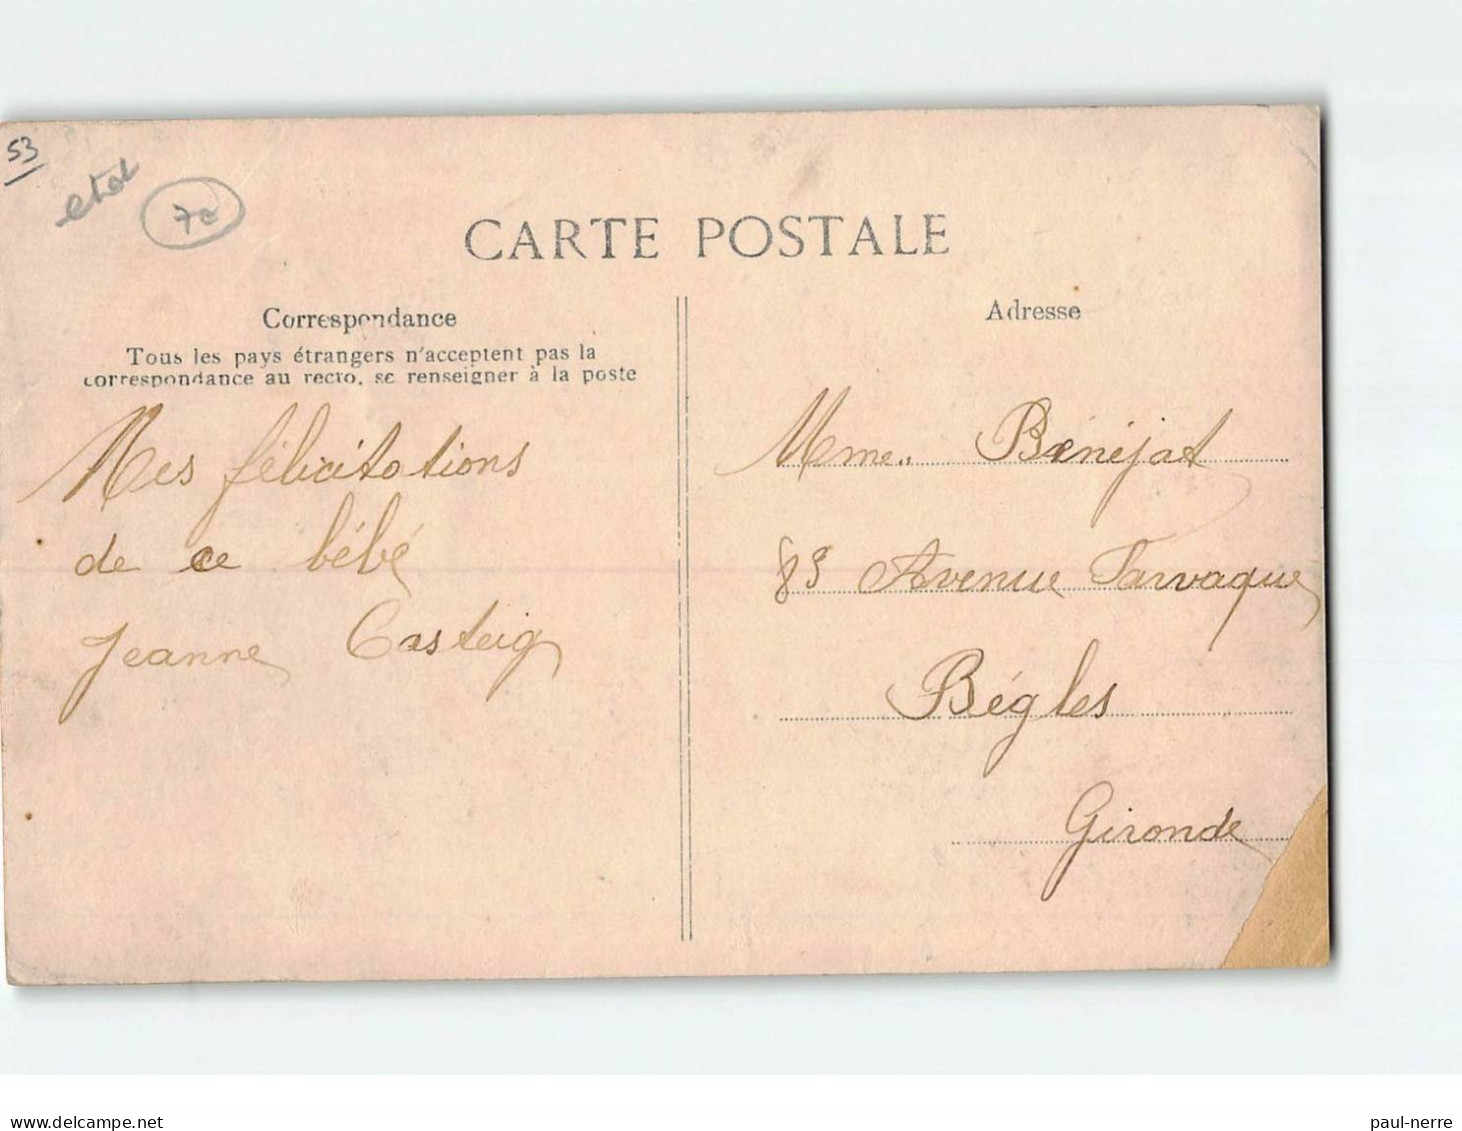 53
etat
CARTE POSTALE
Correspondance
Tous les pays étrangers n'acceptent pas la
correspondance au recto, se renseigner à la poste
Mes félicitations
de ce bébé
Jeanne Casteig
Adresse
Mme. Bénéjat
Avenue Tarvaque
Bègles
Gironde
paul-nerre